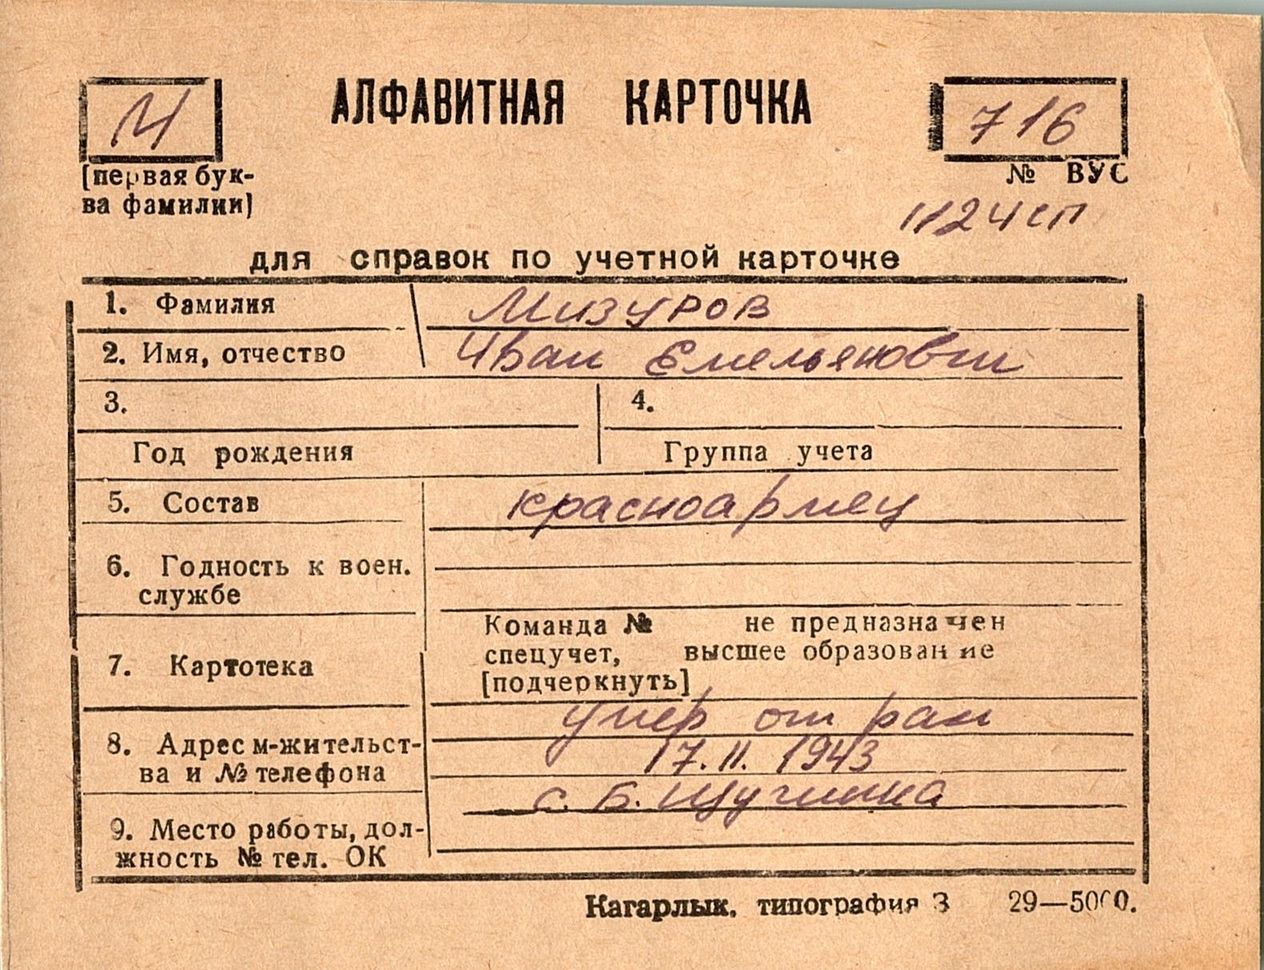 М
АЛФАВИТНАЯ КАРТОЧКА
716
[первая бук-
ва фамилии]
№ ВУС
1124сп
для справок по учетной карточке
1. Фамилия Мизуров
2. Имя, отчество Иван Емельянович
3. 4.
Год рождения Группа учета
5. Состав красноармец
6. Годность к воен.
службе
Команда № не предназначен
спецучет, высшее образование
7. Картотека
[подчеркнуть]
умер от ран
8. Адрес м-жительст-
ва и № телефона
17.11.1943
с. Б. Щучинка
9. Место работы, дол-
жность № тел. ОК
Кагарлык. типография З 29—5000.